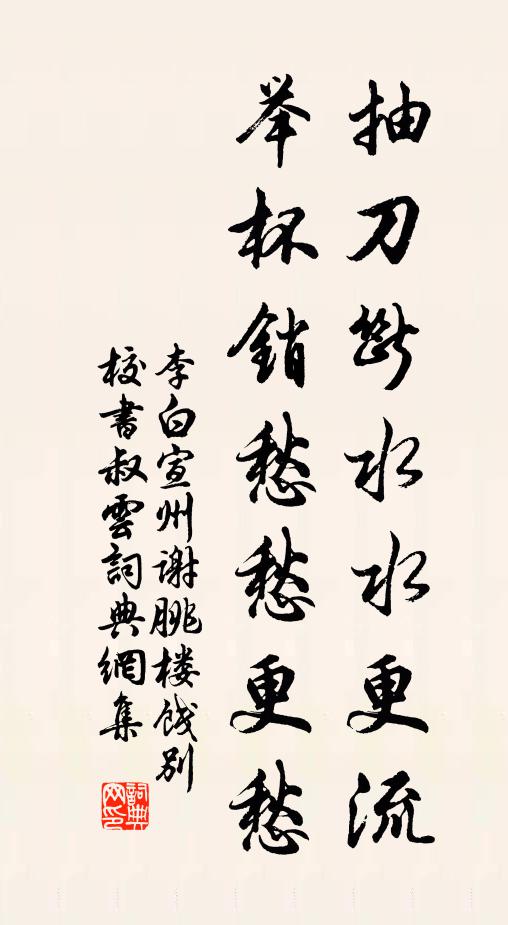 抽刀断水水更流
举杯銷愁愁更愁
李白宣州谢朓楼饯别
校書叔雲詞典網集
詞典网印